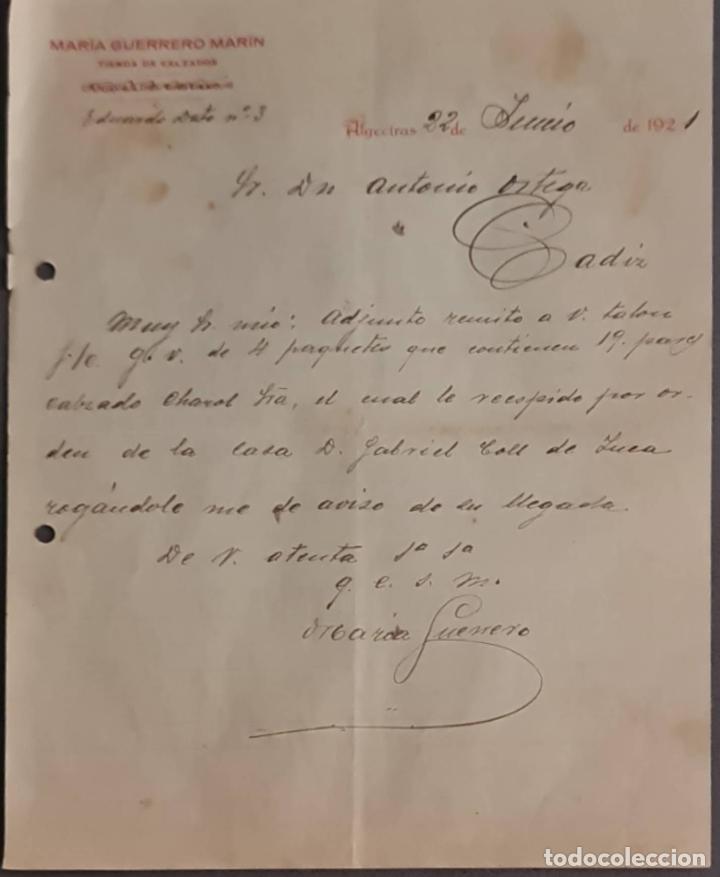 MARÍA GUERRERO MARÍN
TIENDA DE CALZADOS
Eduardo Dato nº 3
Algeciras 22 de Junio de 1921
Sr. Dn Antonio Ortega
Cadiz
Muy Sr. mio: Adjunto remito a V. talon
f/c. g. v. de 4 paquetes que contienen 19. pares
calzado Charol Sra, el cual le reespido por or-
den de la Casa D. Gabriel Coll de Inca
rogándole me de aviso de su llegada.
De V. atenta sª sª
q. e. s. m.
Maria Guerrero
todocoleccion